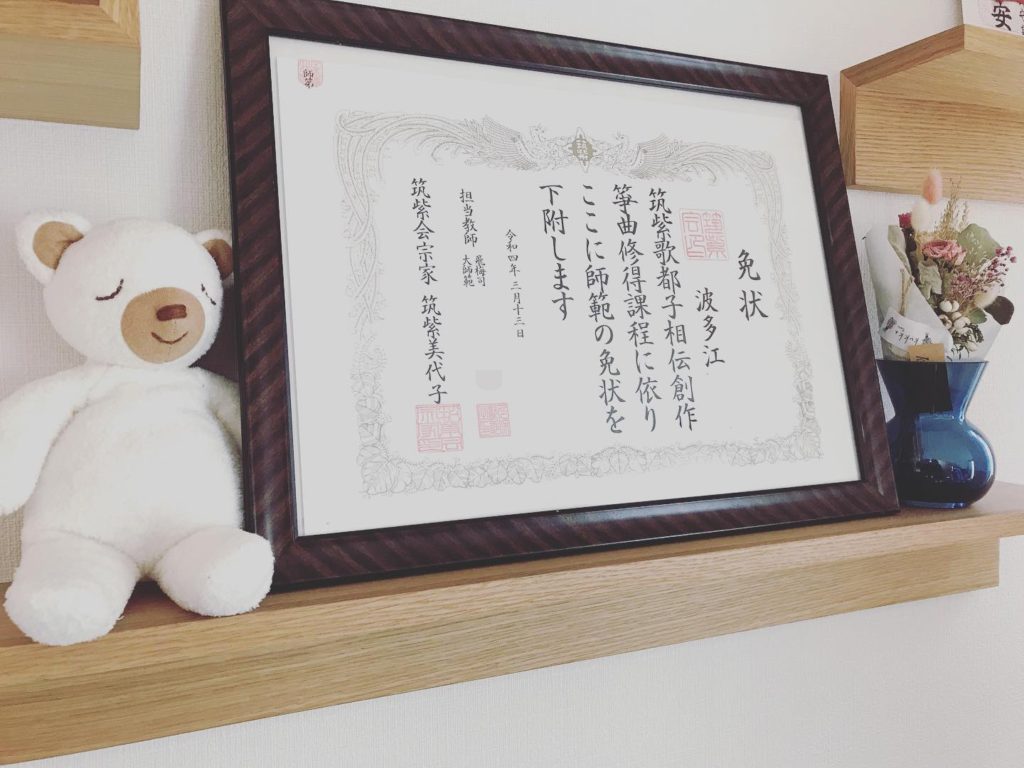 免状
波多江
筑紫歌都子相伝創作
箏曲修得課程に依り
ここに師範の免状を
下附します
令和四年三月十三日
担当教師 飛梅司
大師範
筑紫会宗家 筑紫美代子
師第
安